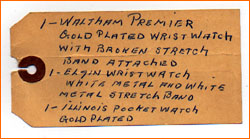 1- WALTHAM PREMIER
GOLD PLATED WRIST WATCH
WITH BROKEN STRETCH
BAND ATTACHED
1- ELGIN WRIST WATCH
WHITE METAL AND WHITE
METAL STRETCH BAND
1- ILLINOIS POCKET WATCH
GOLD PLATED